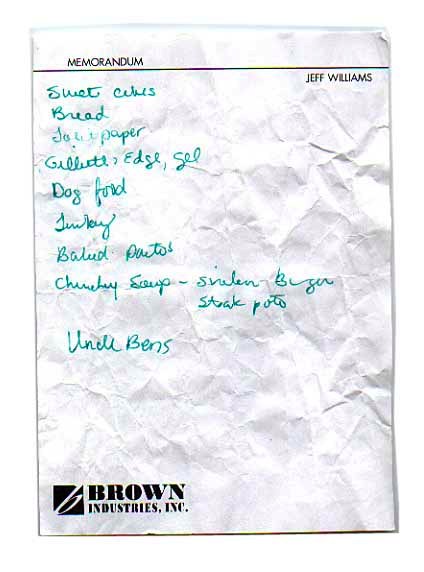 MEMORANDUM
JEFF WILLIAMS
Suet cubes
Bread
Toilet paper
Gillette, Edge, gel
Dog food
Turkey
Baked
Chunky Soup - Sirloin - Burger
Steak poto
Uncle Bens
BROWN
INDUSTRIES, INC.